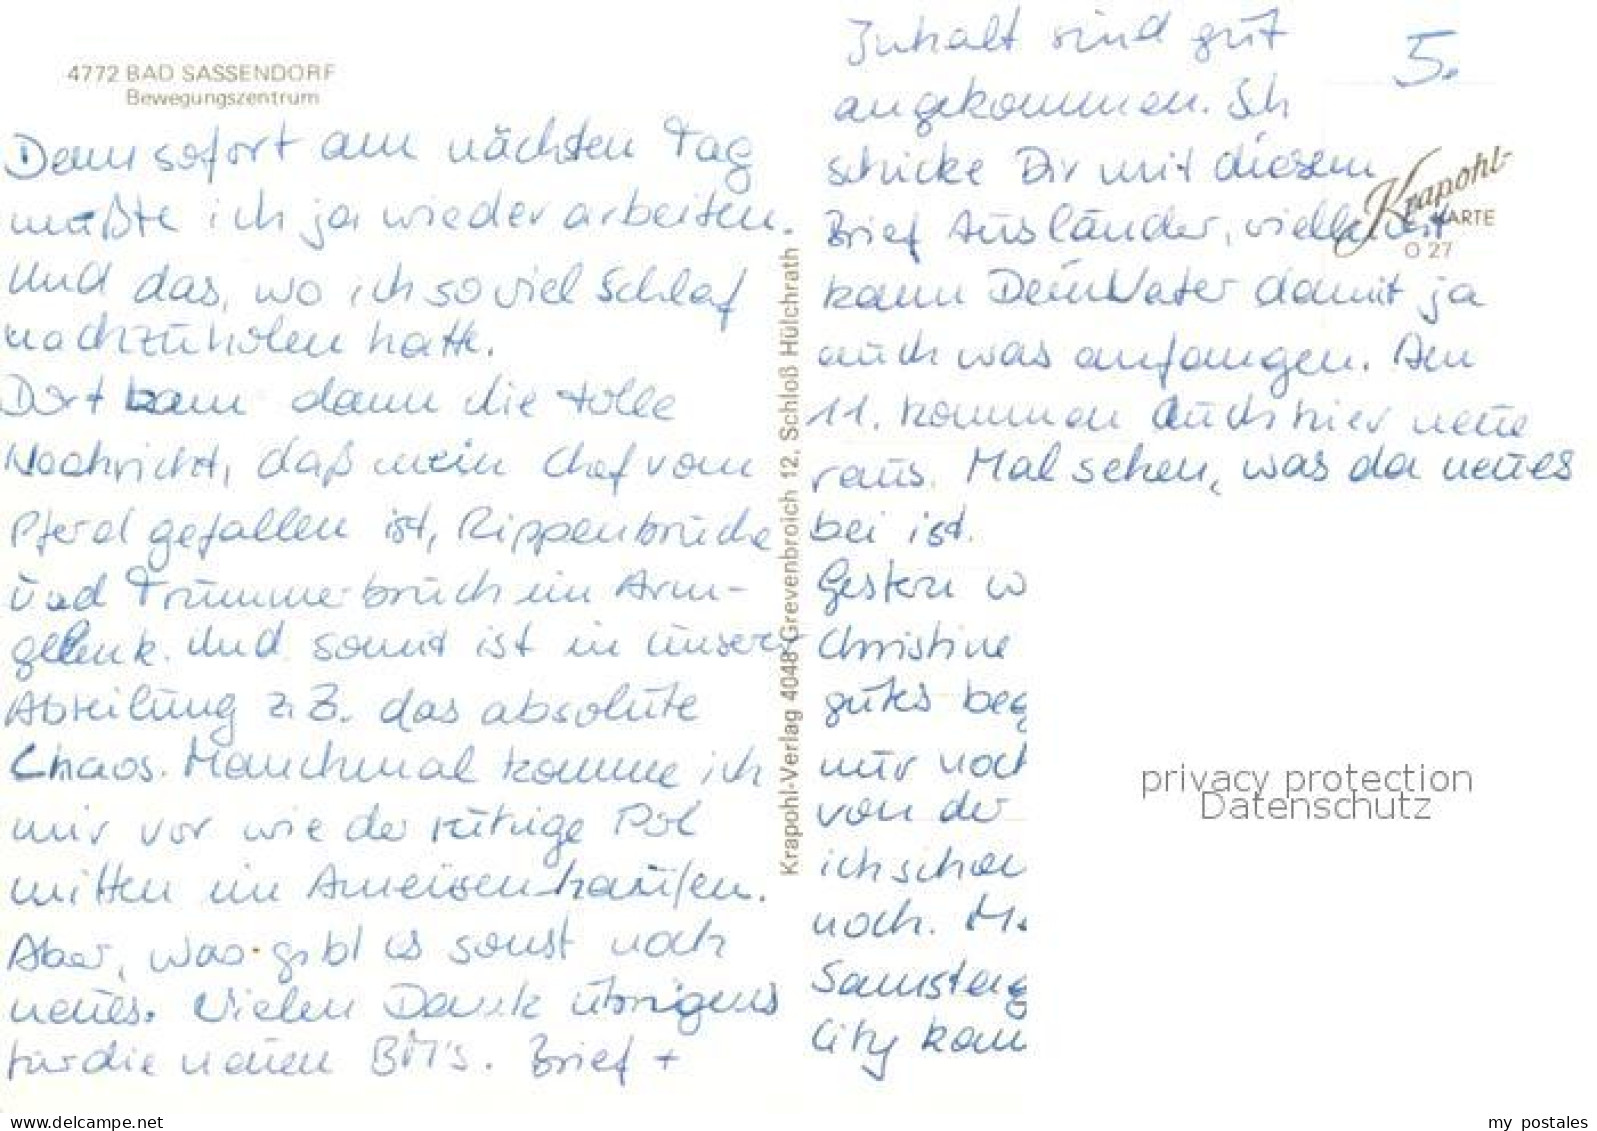 4772 BAD SASSENDORF
Bewegungszentrum
Denn sofort am nächsten Tag
mußte ich ja wieder arbeiten.
Und das, wo ich so viel Schlaf
nachzuholen hatte.
Dort kam dann die tolle
Nachricht, daß mein Chef vom
Pferd gefallen ist, Rippenbrüche
und Trümmerbruch im Arm-
gelenk. Und somit ist in unserer
Abteilung z. Z. das absolute
Chaos. Manchmal komme ich
mir vor wie der ruhige Pol
mitten im Ameisenhaufen.
Aber, was gibt es sonst noch
neues. Vielen Dank übrigens
für die neuen BM's. Brief +
Krapohl-Verlag 4048 Grevenbroich 12, Schloß Hülchrath
5.
Inhalt sind gut
angekommen. Ich
schicke Dir mit diesem
Brief Ausländer, vielleicht
kann Dein Vater damit ja
auch was anfangen. Am
11. kommen auch hier neue
raus. Mal sehen, was da neues
bei ist.
Gestern w
Christine
gutes beg
nur noch
von der
ich schon
noch. M
Samstag
City kam
Krapohl-
KARTE
O 27
privacy protection
Datenschutz
www.delcampe.net
my_postales